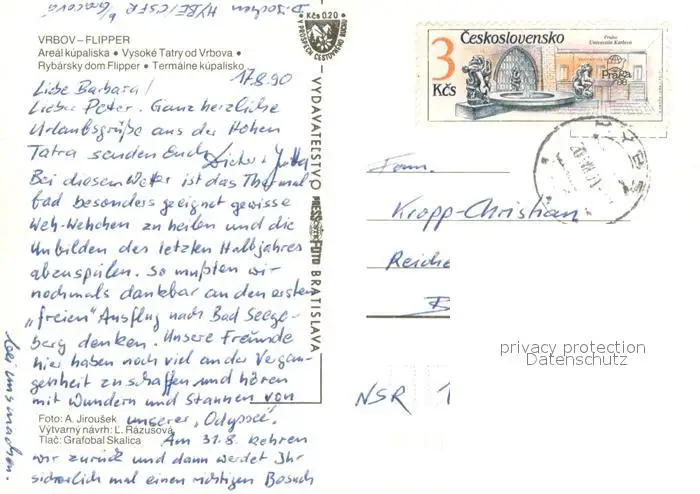 D. Jochen
VRBOV–FLIPPER
Areál kúpaliska • Vysoké Tatry od Vrbova •
Rybársky dom Flipper • Termálne kúpalisko
Kčs 0.20
V PROSPECH CESTOVNÉHO RUCHU
17.8.90
Liebe Barbara!
Lieber Peter. Ganz herzliche
Urlaubsgrüße aus der Hohen
Tatra senden Euch Dieter + Jutta
Bei diesem Wetter ist das Thermal
bad besonders geeignet gewisse
Weh-Wehchen zu heilen und die
Unbilden des letzten Halbjahres
abzuspülen. So mußten wir
nochmals dankbar an den ersten
„freien" Ausflug nach Bad Seege-
berg denken. Unsere Freunde
hier haben noch viel an der Vergan-
genheit zu schaffen und hören
mit Wundern und Staunen von
unserer „Odyssee".
Am 31.8. kehren
wir zurück und dann werdet Ihr
sicherlich mal einen richtigen Besuch
bei uns machen.
Foto: A. Jiroušek
Výtvarný návrh: Ľ. Rázusová
Tlač: Grafobal Skalica
VYDAVATEĽSTVO PRESSFOTO BRATISLAVA
Československo
3
Kčs
Praha
Univerzita Karlova
Praga
88
Fam.
Kropp-Christian
Reiche
B
NSR 1
privacy protection
Datenschutz